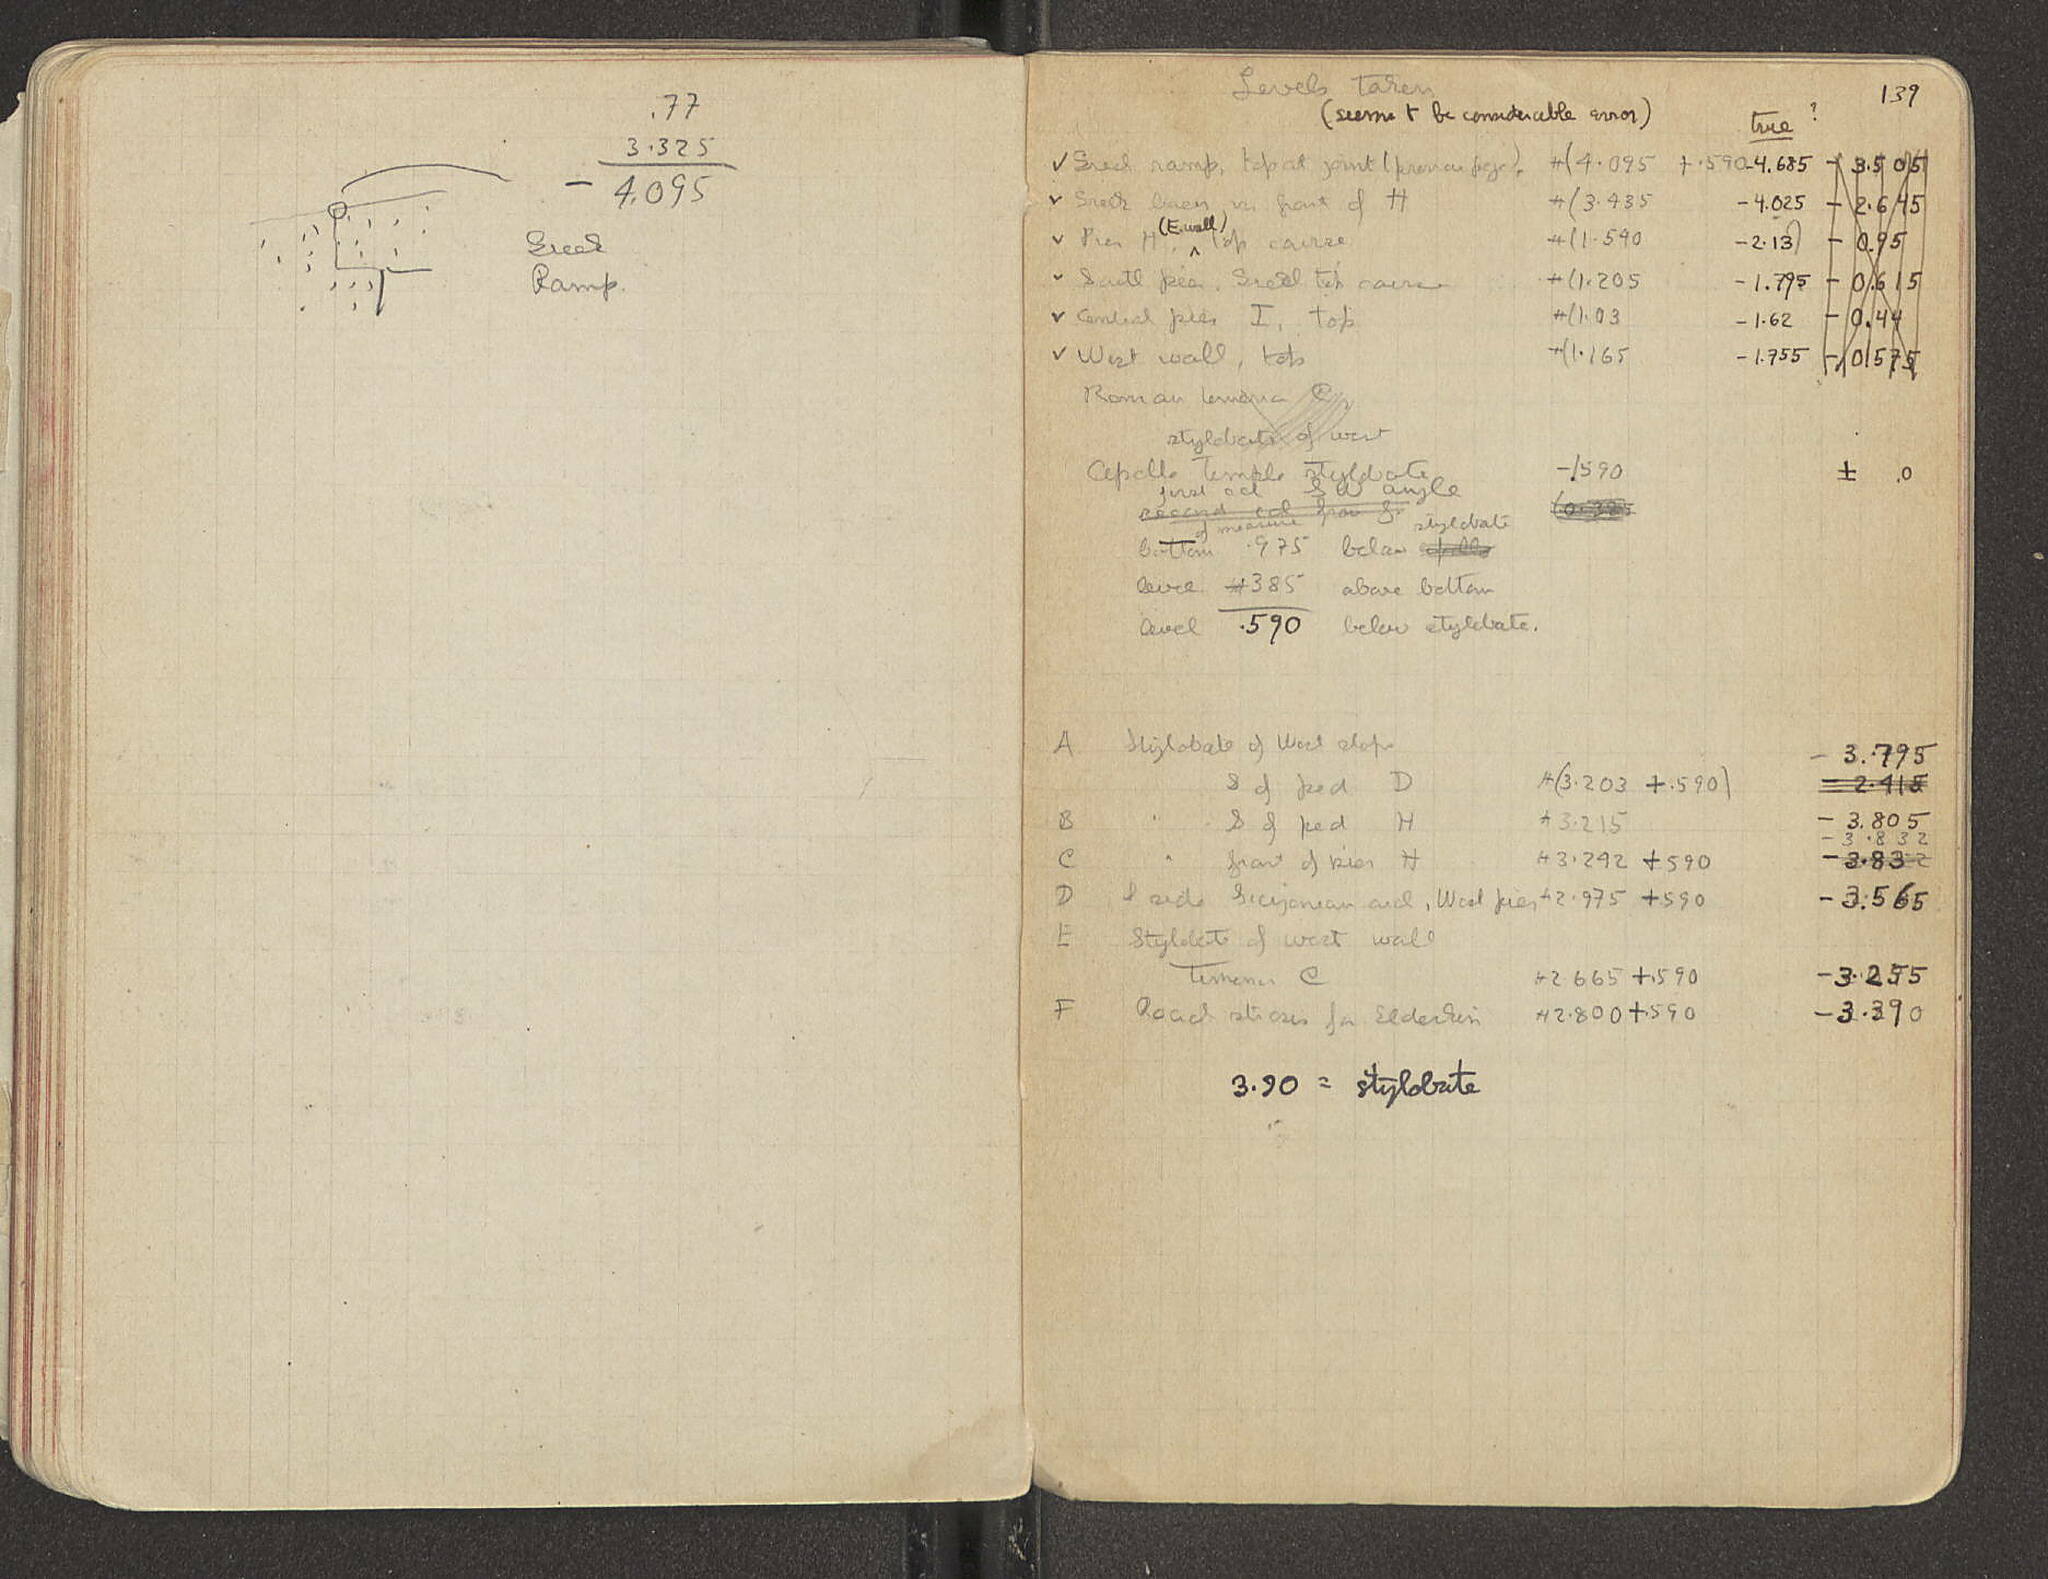 .77
3.325
- 4.095
Greek
Ramp.
139
Levels taken
(seems t be considerable error)
true ?
✓ Greek ramp, top at joint (previous page). +(4.095 +.590 -4.685 - 3.505
✓ Greek in front of H +(3.435 -4.025 - 2.645
✓ Pier H, (E. wall) top course +(1.590 -2.13) - 0.95
✓ South pier, Greek top course +(1.205 -1.795 - 0.615
✓ Central pier I, top +(1.03 -1.62 - 0.44
✓ West wall, top +(1.165 -1.755 - 0.575
Roman temenos C
stylobate of west
Apollo Temple stylobate -.590 ± .0
first col S W angle
second col from (0.385
of measure stylobate
bottom .975 below
level +385 above bottom
level .590 below stylobate.
A Stylobate of West slope - 3.795
S of ped D +(3.203 +.590) - 2.415
B " S of ped H +3.215 - 3.805
- 3.832
C " front of pier H +3.242 +590 - 3.832
D S side Sicyonian ard, West pier +2.975 +590 - 3.565
E Stylobate of west wall
Temenos C +2.665 +.590 -3.255
F Road stones for Elderkin +2.800 +.590 -3.390
3.90 = stylobate